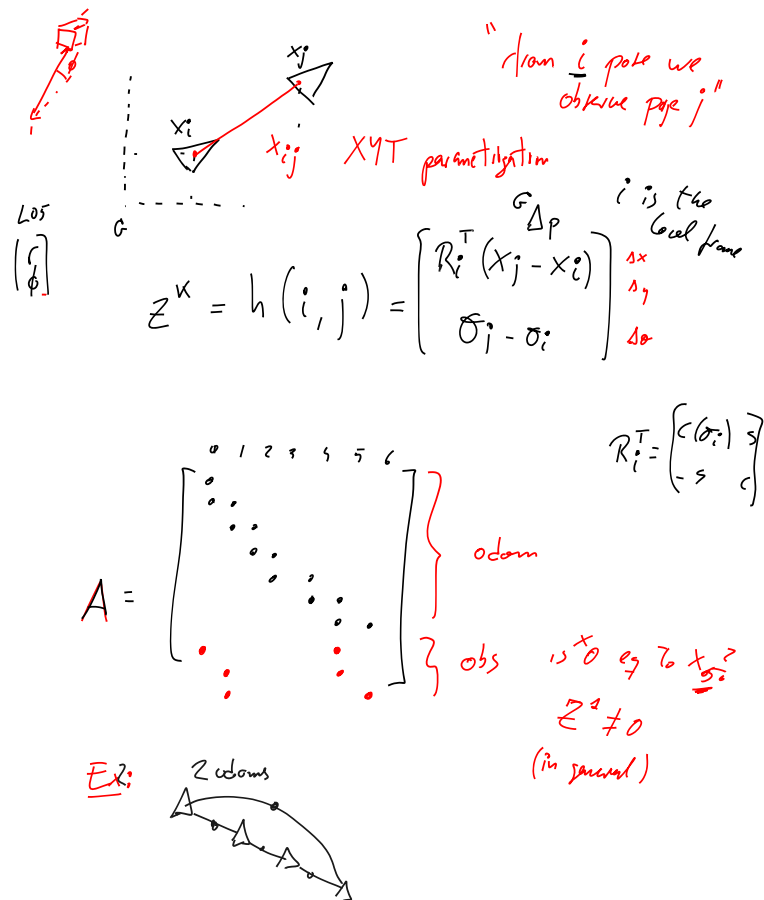 "from i pose we
observe pose j"
ϕ
x_j
x_i
x_ij
XYT parametrization
G
L05
[r
ϕ]
i is the
local frame
^G Δp
z^k = h(i, j) = [R_i^T (x_j - x_i)
θ_j - θ_i]
Δx
Δy
Δθ
R_i^T = [c(θ_i) s
-s c]
0 1 2 3 4 5 6
A =
odom
obs
is x_0 eq to x_5?
z^1 ≠ 0
(in general)
Ex2:
2 odoms